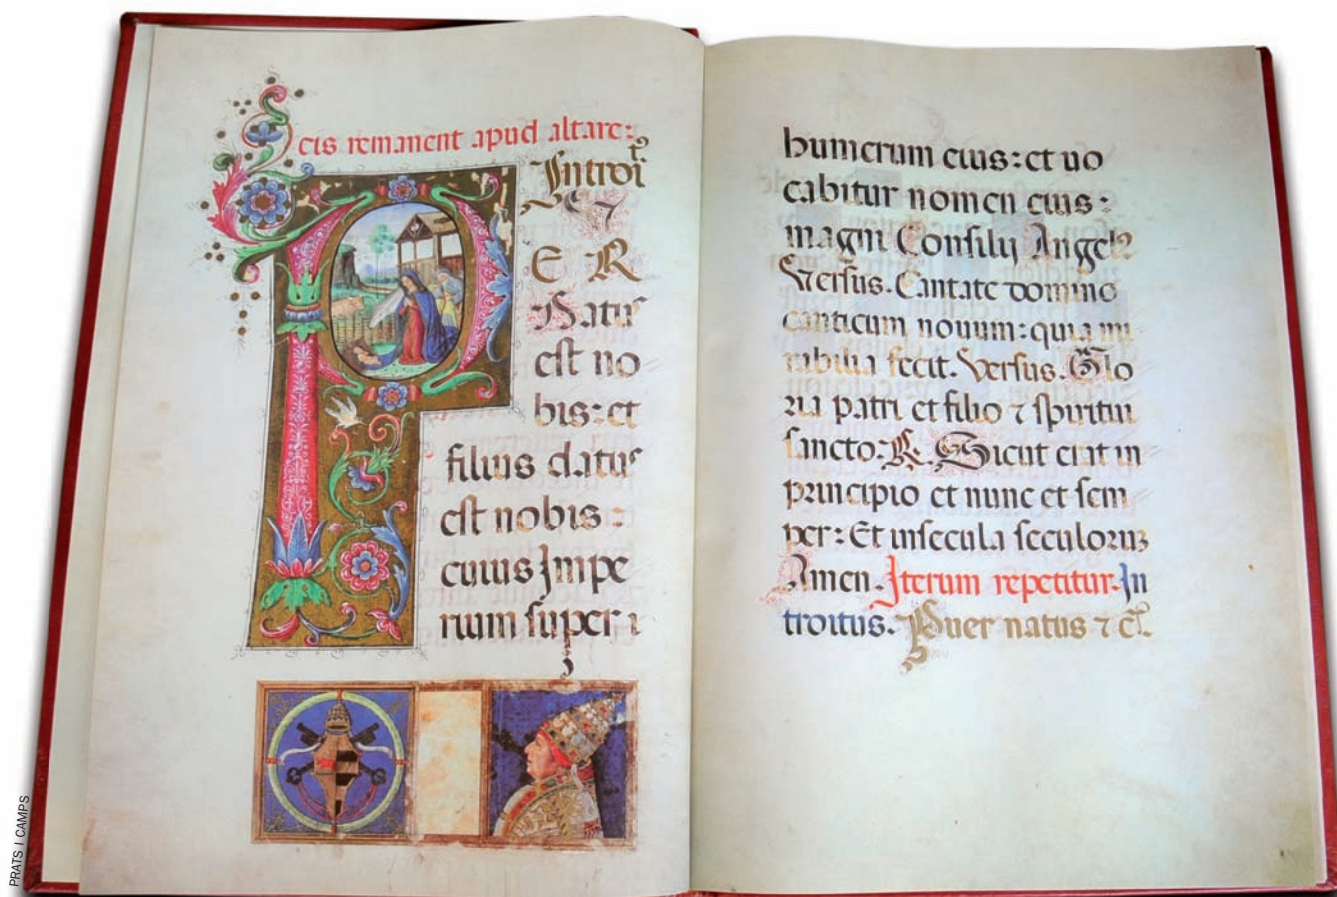 cis remanent apud altare:
Introi
P
E R
Natus
est no
bis: et
filius datus
est nobis:
cuius Impe
rium super
humerum eius: et uo
cabitur nomen eius:
magni Consilij Angelꝰ
Versus. Cantate domino
canticum nouum: quia mi
rabilia fecit. Versus. Glo
ria patri et filio ⁊ spiritui
sancto: R. Sicut erat in
principio et nunc et sem
per: Et insecula seculorum
Amen. Iterum repetitur. In
troitus. Puer natus ⁊ c̃.
PRATS I CAMPS